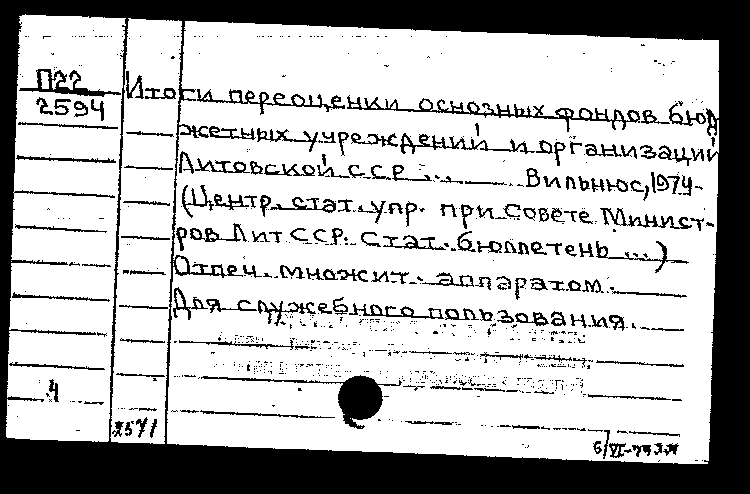 П22
2594
Итоги переоценки основных фондов бюд
жетных учреждений и организаций
Литовской ССР ... Вильнюс, 1974-
(Центр. стат. упр. при Совете Минист-
ров ЛитССР. Стат. бюллетень ...)
Отпеч. множит. аппаратом.
Для служебного пользования.
4
2571
6/VI-75